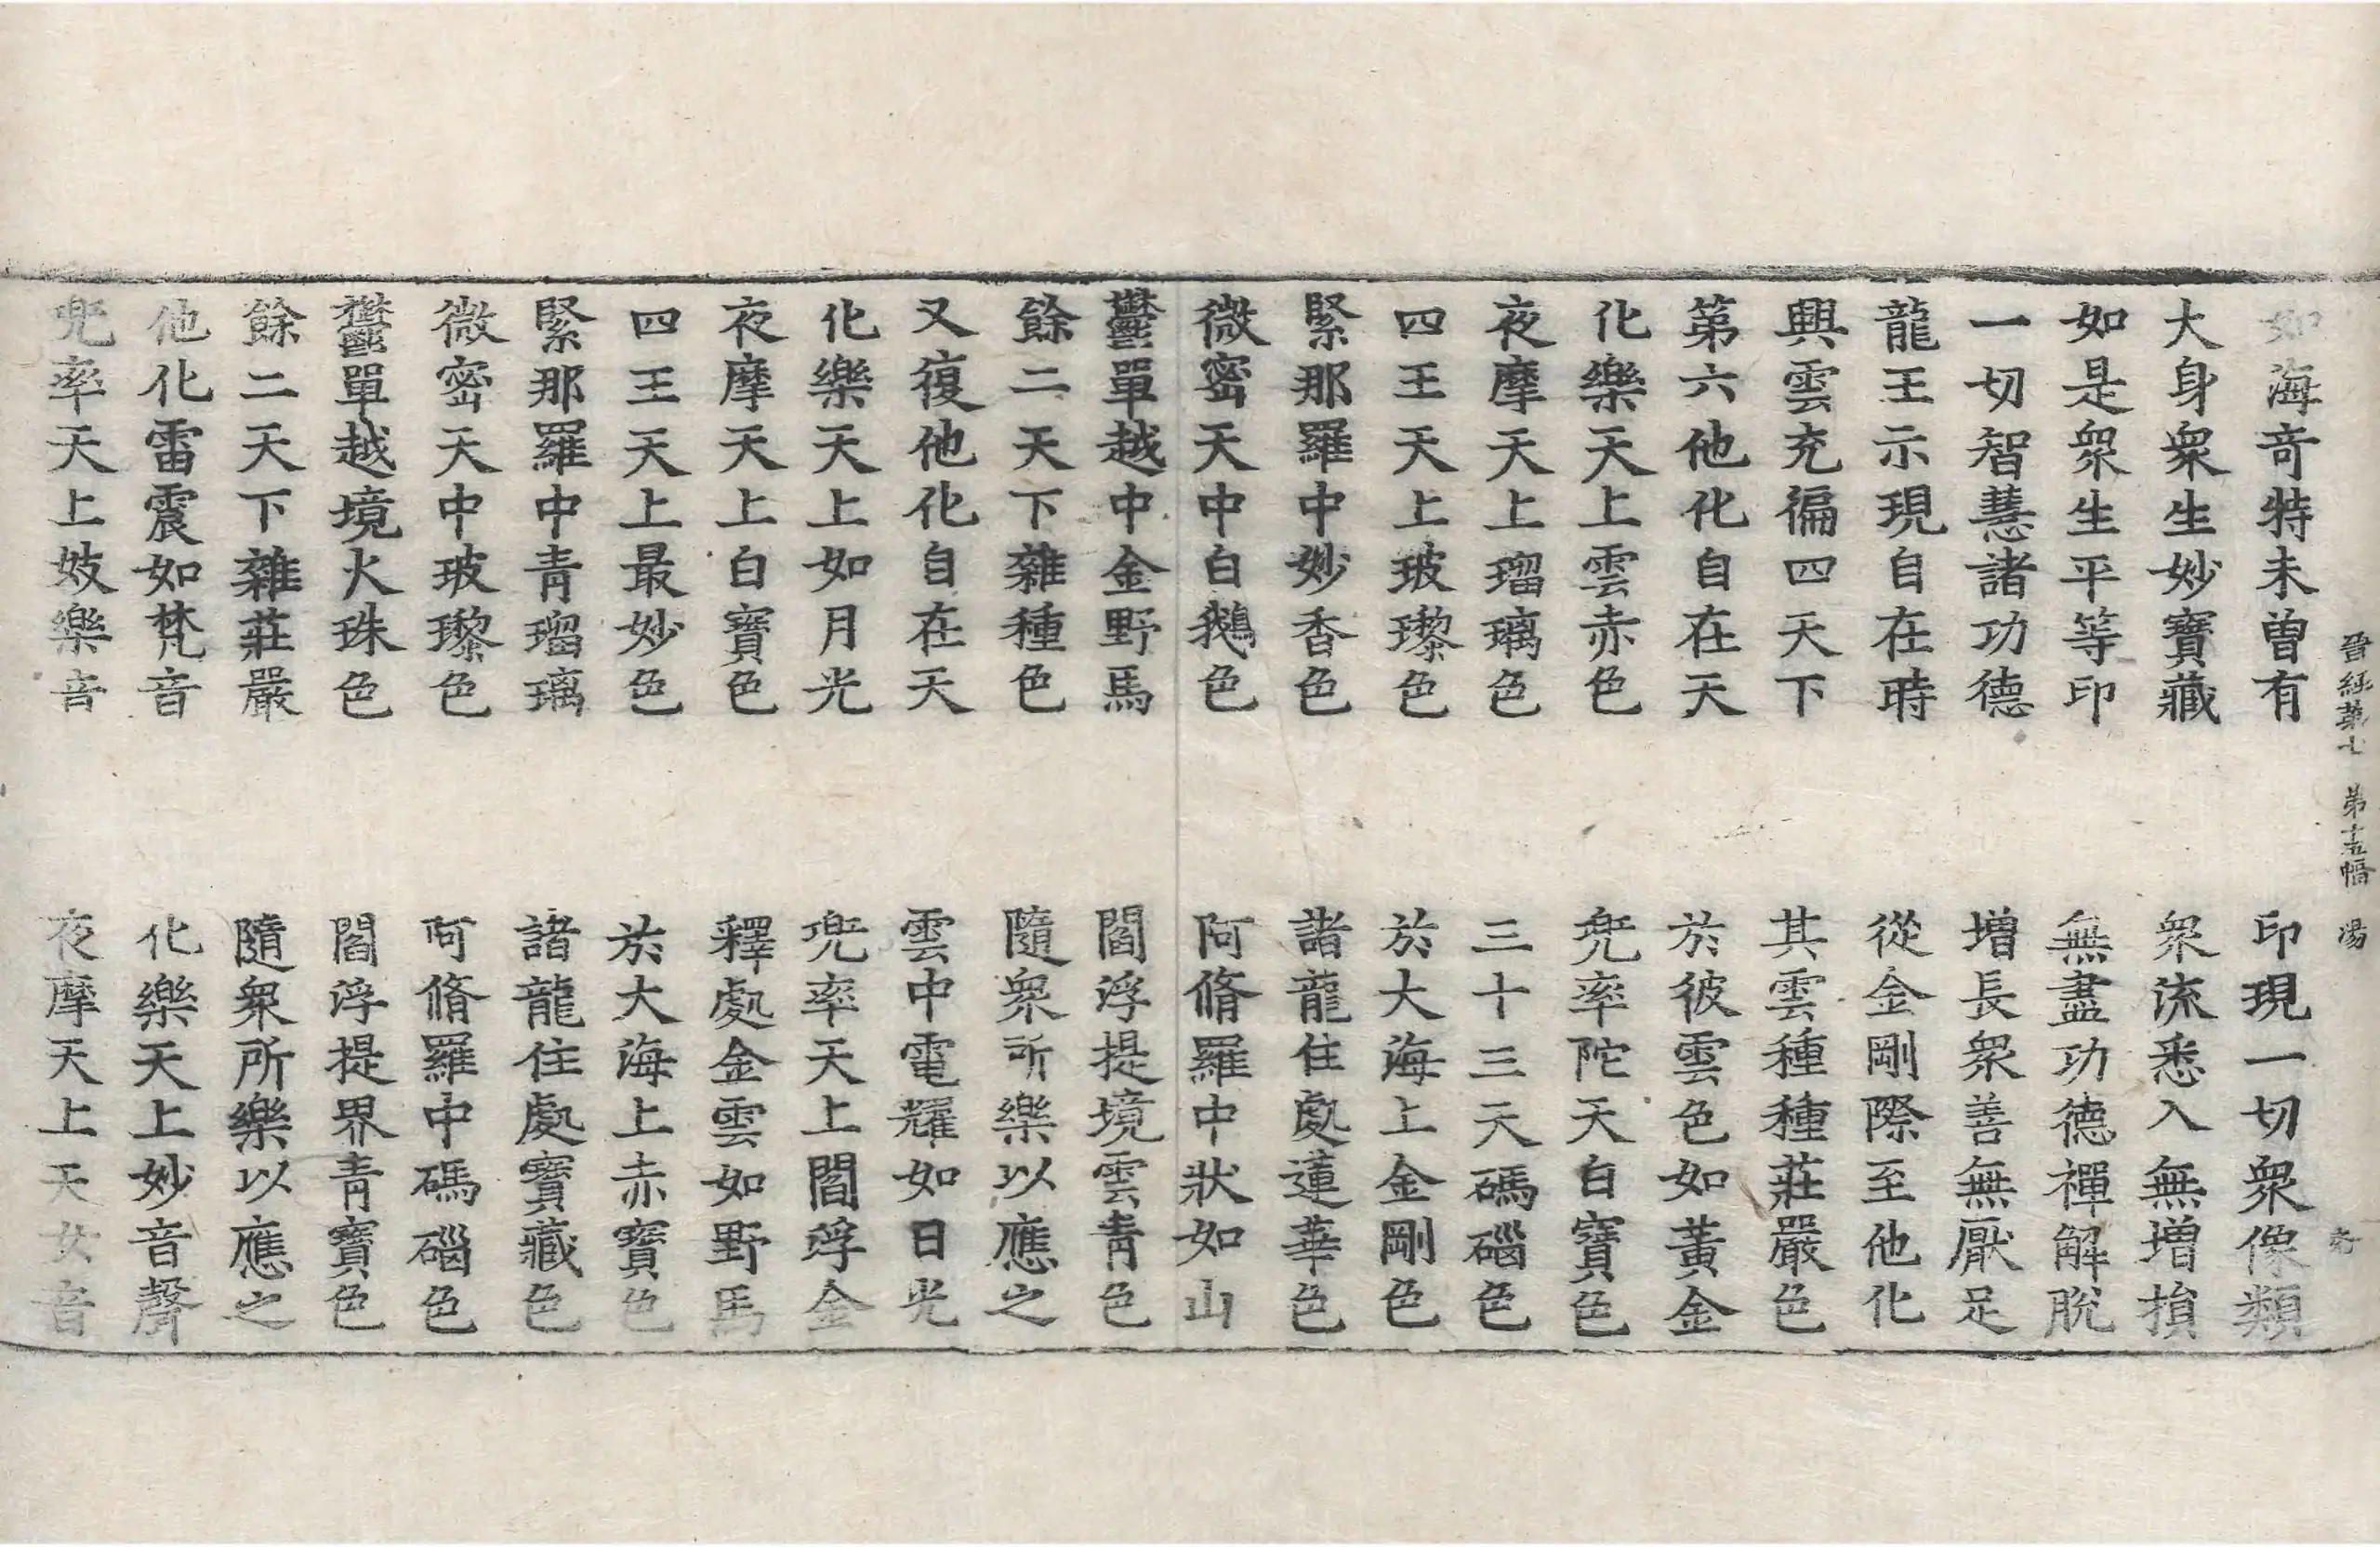 晉經第七　第十五幅　湯
如海奇特未曾有　印現一切衆像類
大身衆生妙寶藏　衆流悉入無增損
如是衆生平等印　無盡功德禪解脫
一切智慧諸功德　增長衆善無厭足
龍王示現自在時　從金剛際至他化
興雲充徧四天下　其雲種種莊嚴色
第六他化自在天　於彼雲色如黃金
化樂天上雲赤色　兜率陀天白寶色
夜摩天上瑠璃色　三十三天碼碯色
四王天上玻瓈色　於大海上金剛色
緊那羅中妙香色　諸龍住處蓮華色
微密天中白鵝色　阿脩羅中狀如山
鬱單越中金野馬　閻浮提境雲青色
餘二天下雜種色　隨衆所樂以應之
又復他化自在天　雲中電耀如日光
化樂天上如月光　兜率天上閻浮金
夜摩天上白寶色　釋處金雲如野馬
四王天上最妙色　於大海上赤寶色
緊那羅中青瑠璃　諸龍住處寶藏色
微密天中玻瓈色　阿脩羅中碼碯色
鬱單越境火珠色　閻浮提界青寶色
餘二天下雜莊嚴　隨衆所樂以應之
他化雷震如梵音　化樂天上妙音聲
兜率天上妓樂音　夜摩天上天女音